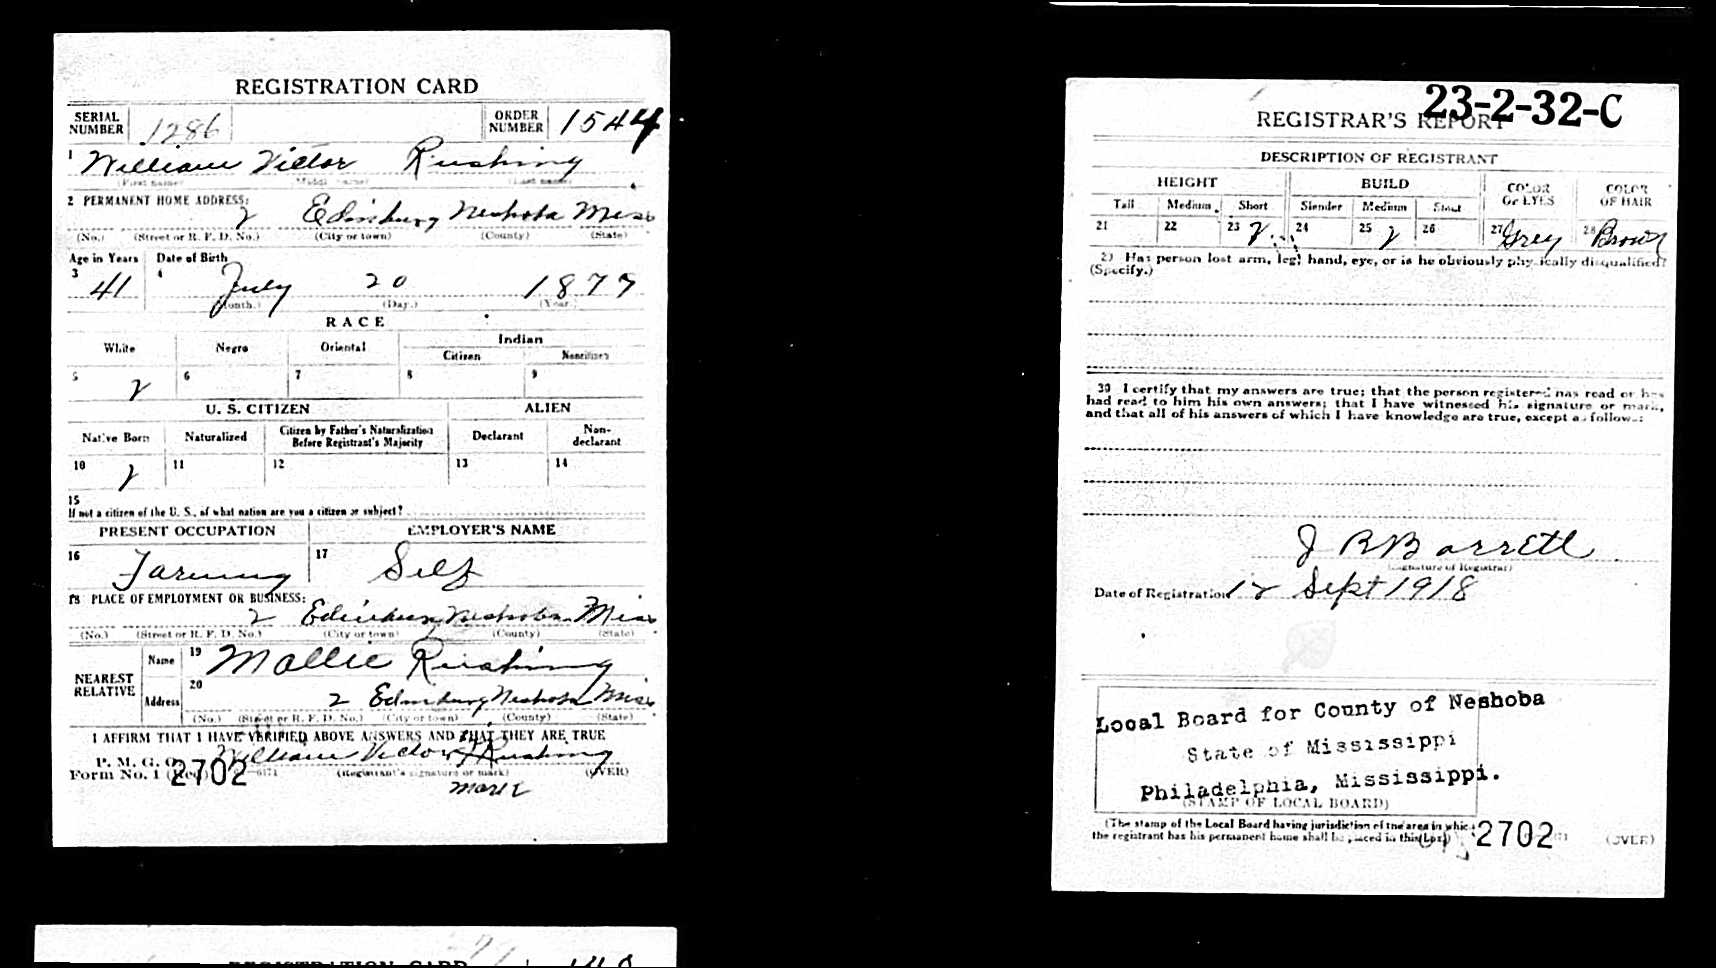 REGISTRATION CARD
SERIAL NUMBER 1286 ORDER NUMBER 1544
1 William Victor Rushing
(First name) (Middle name) (Last name)
2 PERMANENT HOME ADDRESS:
2 Edinburg Neshoba Miss
(No.) (Street or R. F. D. No.) (City or town) (County) (State)
Age in Years Date of Birth
3 41 4 July 20 1877
(Month.) (Day.) (Year.)
RACE
White Negro Oriental Indian
Citizen Noncitizen
5 6 7 8 9
U. S. CITIZEN ALIEN
Native Born Naturalized Citizen by Father's Naturalization Before Registrant's Majority Declarant Non-declarant
10 11 12 13 14
15
If not a citizen of the U. S., of what nation are you a citizen or subject?
PRESENT OCCUPATION EMPLOYER'S NAME
16 Farming 17 Self
18 PLACE OF EMPLOYMENT OR BUSINESS:
2 Edinburg Neshoba Miss
(No.) (Street or R. F. D. No.) (City or town) (County) (State)
NEAREST RELATIVE Name 19 Mollie Rushing
Address 20 2 Edinburg Neshoba Miss
(No.) (Street or R. F. D. No.) (City or town) (County) (State)
I AFFIRM THAT I HAVE VERIFIED ABOVE ANSWERS AND THAT THEY ARE TRUE
P. M. G. O. William Victor Rushing
Form No. 1 (Red) 2702 (Registrant's signature or mark) (OVER)
mark
REGISTRATION CARD
23-2-32-C
REGISTRAR'S REPORT
DESCRIPTION OF REGISTRANT
HEIGHT BUILD COLOR OF EYES COLOR OF HAIR
Tall Medium Short Slender Medium Stout
21 22 23 24 25 26 27 Grey 28 Brown
29 Has person lost arm, leg, hand, eye, or is he obviously physically disqualified?
(Specify.)
30 I certify that my answers are true; that the person registered has read or has
had read to him his own answers; that I have witnessed his signature or mark,
and that all of his answers of which I have knowledge are true, except as follows:
J R Barrett
(Signature of Registrar)
Date of Registration 12 Sept 1918
Local Board for County of Neshoba
State of Mississippi
Philadelphia, Mississippi.
(STAMP OF LOCAL BOARD)
(The stamp of the Local Board having jurisdiction of the area in which
the registrant has his permanent home shall be placed in this box.)
2702 (OVER)